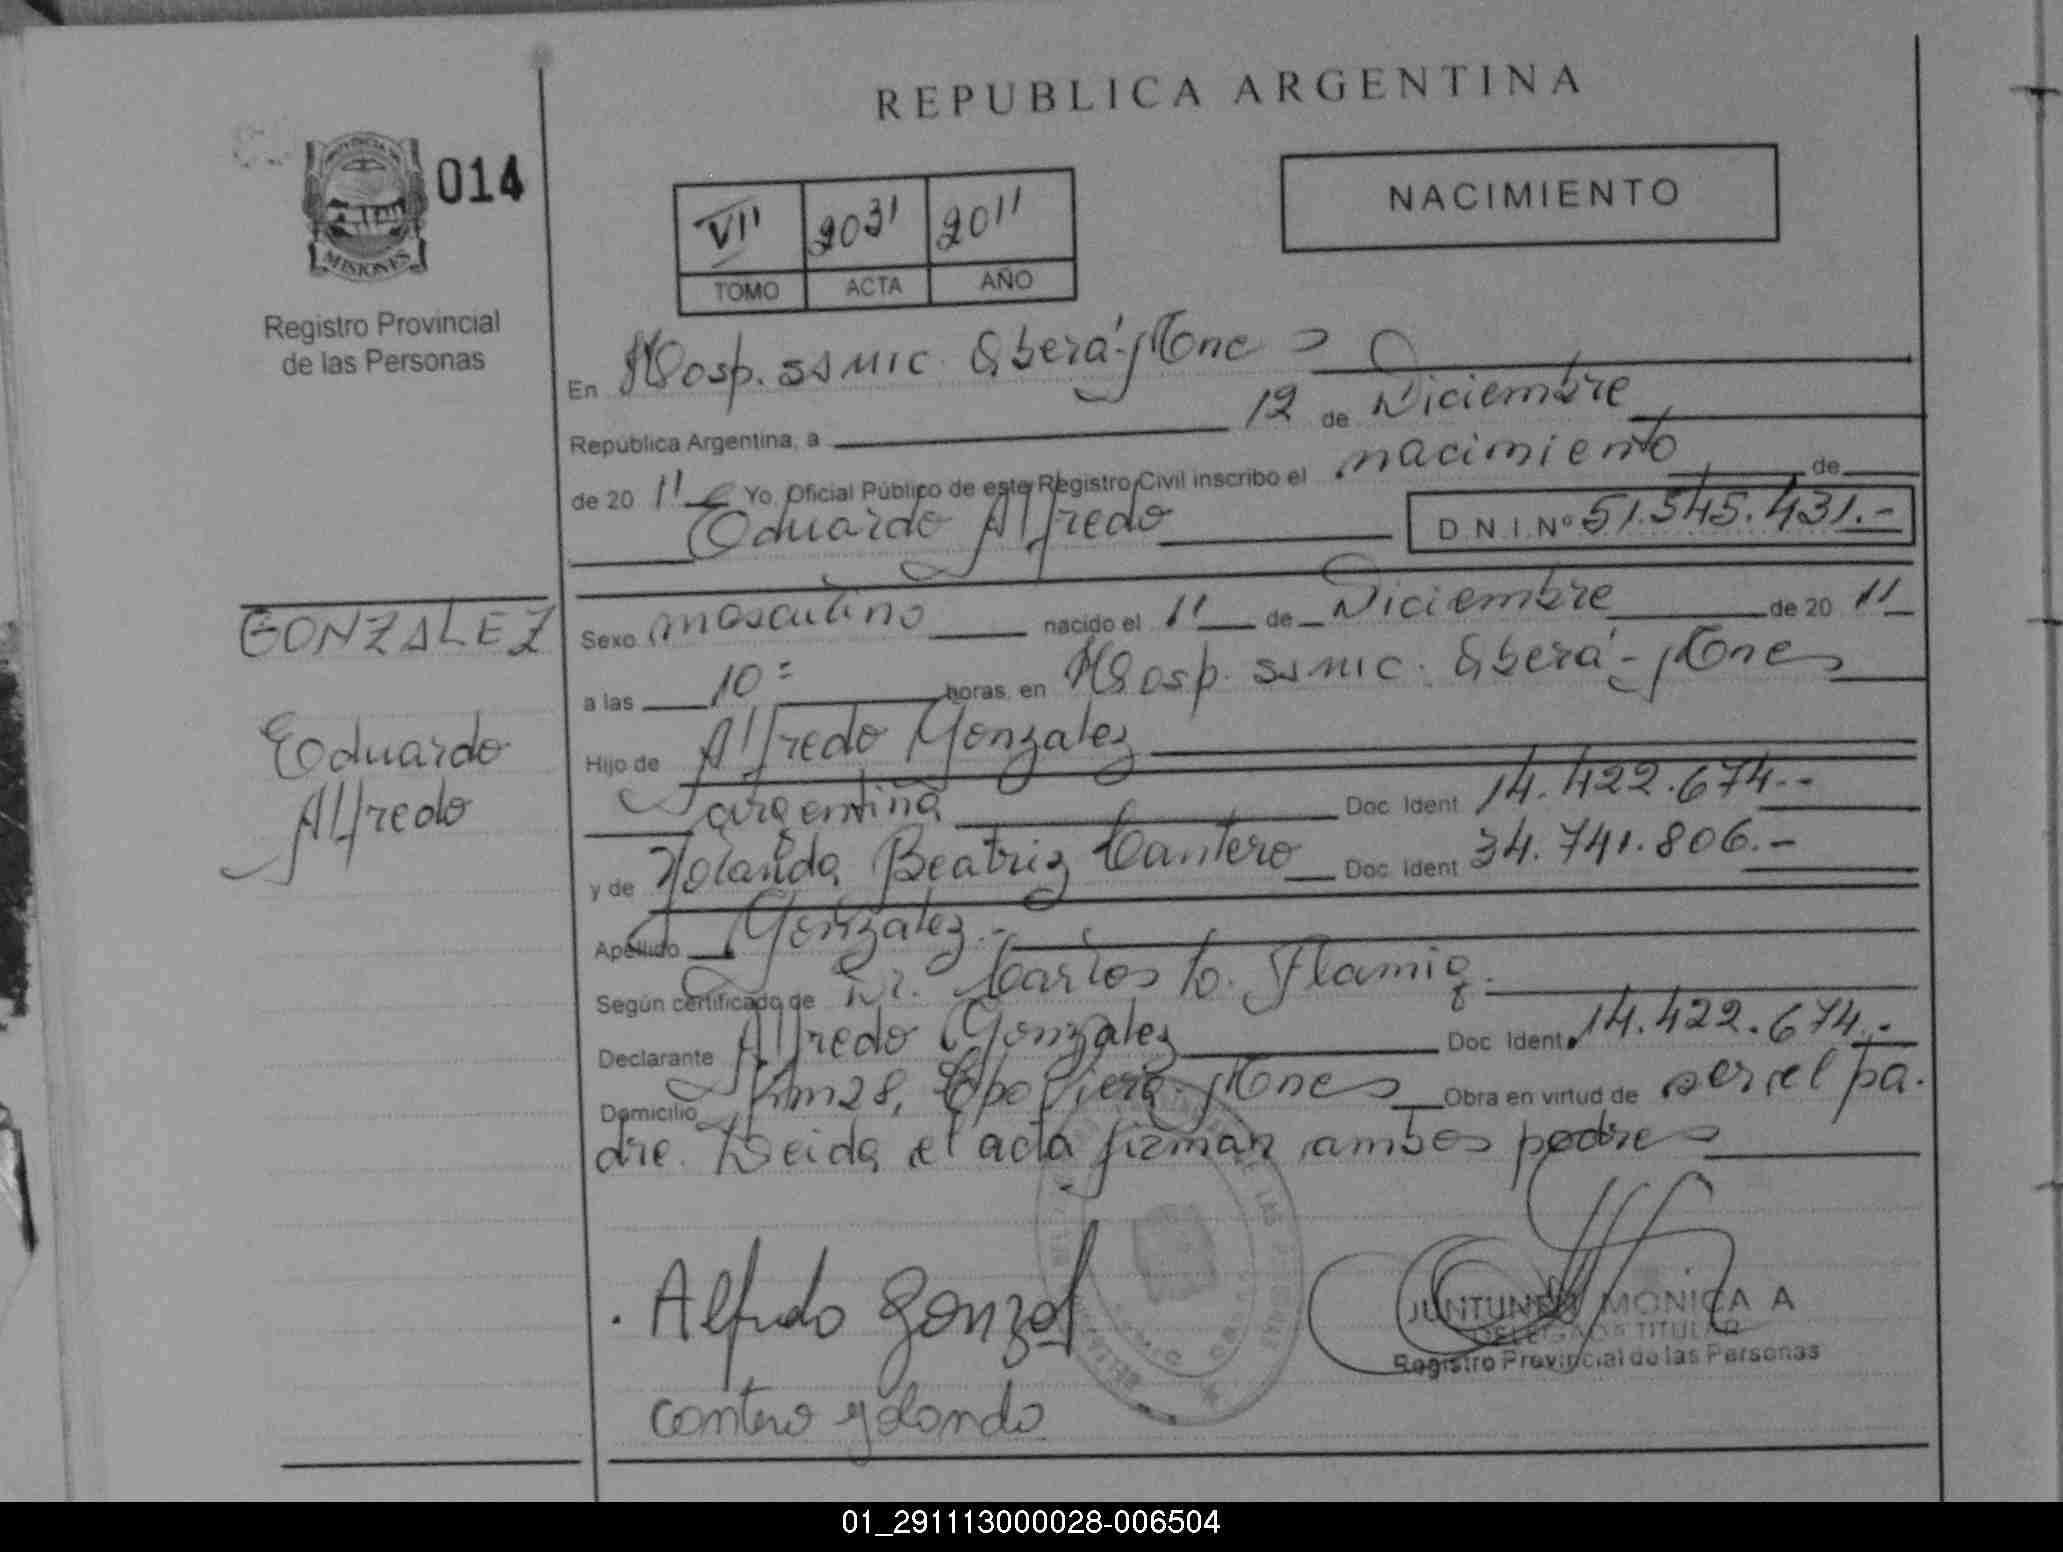 REPUBLICA ARGENTINA
014
MISIONES
Registro Provincial
de las Personas
VII 2031 2011
TOMO ACTA AÑO
NACIMIENTO
En Hosp. SAMIC. Oberá-Mnes
República Argentina, a 12 de Diciembre
de 2011 Yo, Oficial Público de este Registro Civil inscribo el nacimiento de
Eduardo Alfredo D.N.I.Nº 51.545.431.-
GONZALEZ
Eduardo
Alfredo
Sexo masculino nacido el 11 de Diciembre de 2011
a las 10 horas, en Hosp. SAMIC. Oberá-Mnes
Hijo de Alfredo Gonzalez
argentina Doc. Ident. 14.422.674.-
y de Yolanda Beatriz Cantero Doc. Ident. 34.741.806.-
Apellido Gonzalez.-
Según certificado de Dr. Carlos D.
Declarante Alfredo Gonzalez Doc. Ident. 14.422.674.-
Domicilio Km28, Cpo Viera-Mnes Obra en virtud de ser el pa.
dre. Leida el acta firman ambos padres
Alfredo Gonzal
cantero yolanda
MONICA A
DELEGADA TITULAR
Registro Provincial de las Personas
01_291113000028-006504